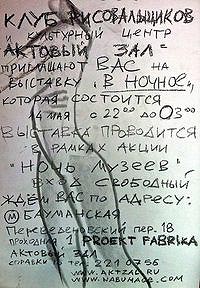 КЛУБ РИСОВАЛЬЩИКОВ
И КУЛЬТУРНЫЙ ЦЕНТР
"АКТОВЫЙ ЗАЛ"
ПРИГЛАШАЮТ ВАС НА
ВЫСТАВКУ "В НОЧНОЕ",
КОТОРАЯ СОСТОИТСЯ
14 МАЯ С 22 00 ДО 03 00
ВЫСТАВКА ПРОВОДИТСЯ
В РАМКАХ АКЦИИ
"НОЧЬ МУЗЕЕВ"
ВХОД СВОБОДНЫЙ
ЖДЁМ ВАС ПО АДРЕСУ:
М БАУМАНСКАЯ
ПЕРЕВЕДЕНОВСКИЙ ПЕР. 18
ПРОХОДНАЯ 1 PROEKT FABRIKA
АКТОВЫЙ ЗАЛ
СПРАВКИ ПО ТЕЛ. 221 07 56
WWW.AKTZAL.RU
WWW.NABUMAGE.COM